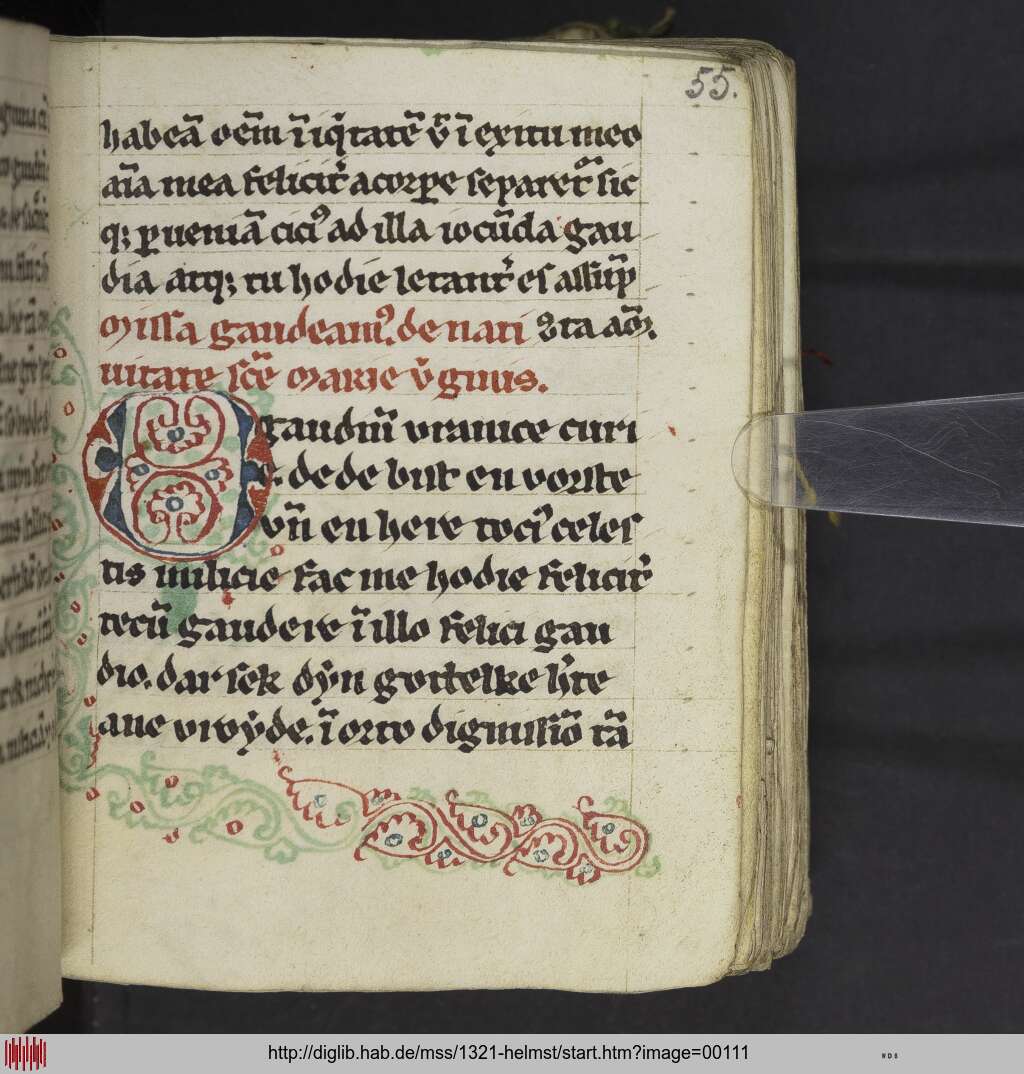 55.
habeā oēm īiq̄tatē v̄ ī exitu meo
aīa mea feliciť acorpe separeť sic
q; ꝑueniā citiꝰ ad illa iocūda gau
dia atq; tu hodie letanť es assūp
Missa gaudeamꝰ. de nati ꝛta aōꝛ.
uitate scē marie v̓ginis.
O gaudiū vranice curi
e. de de bist en vorste
vn̄ en here tociꝰ celes
tis milicie fac me hodie feliciť
tecū gaudere ī illo felici gau
dio. dar sek dẏn gotlelke h̓te
ane vroẏde. ī orto dignissīo tā
http://diglib.hab.de/mss/1321-helmst/start.htm?image=00111